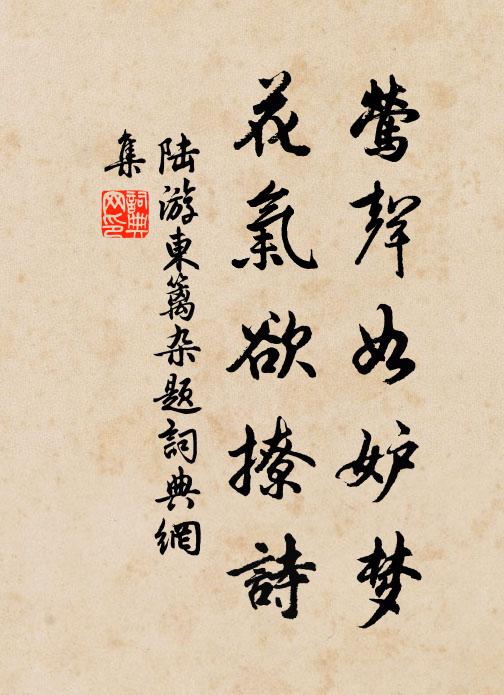 莺聲如妒梦
花氣欲撩詩
陆游東籬杂题詞典網
集
詞典网印